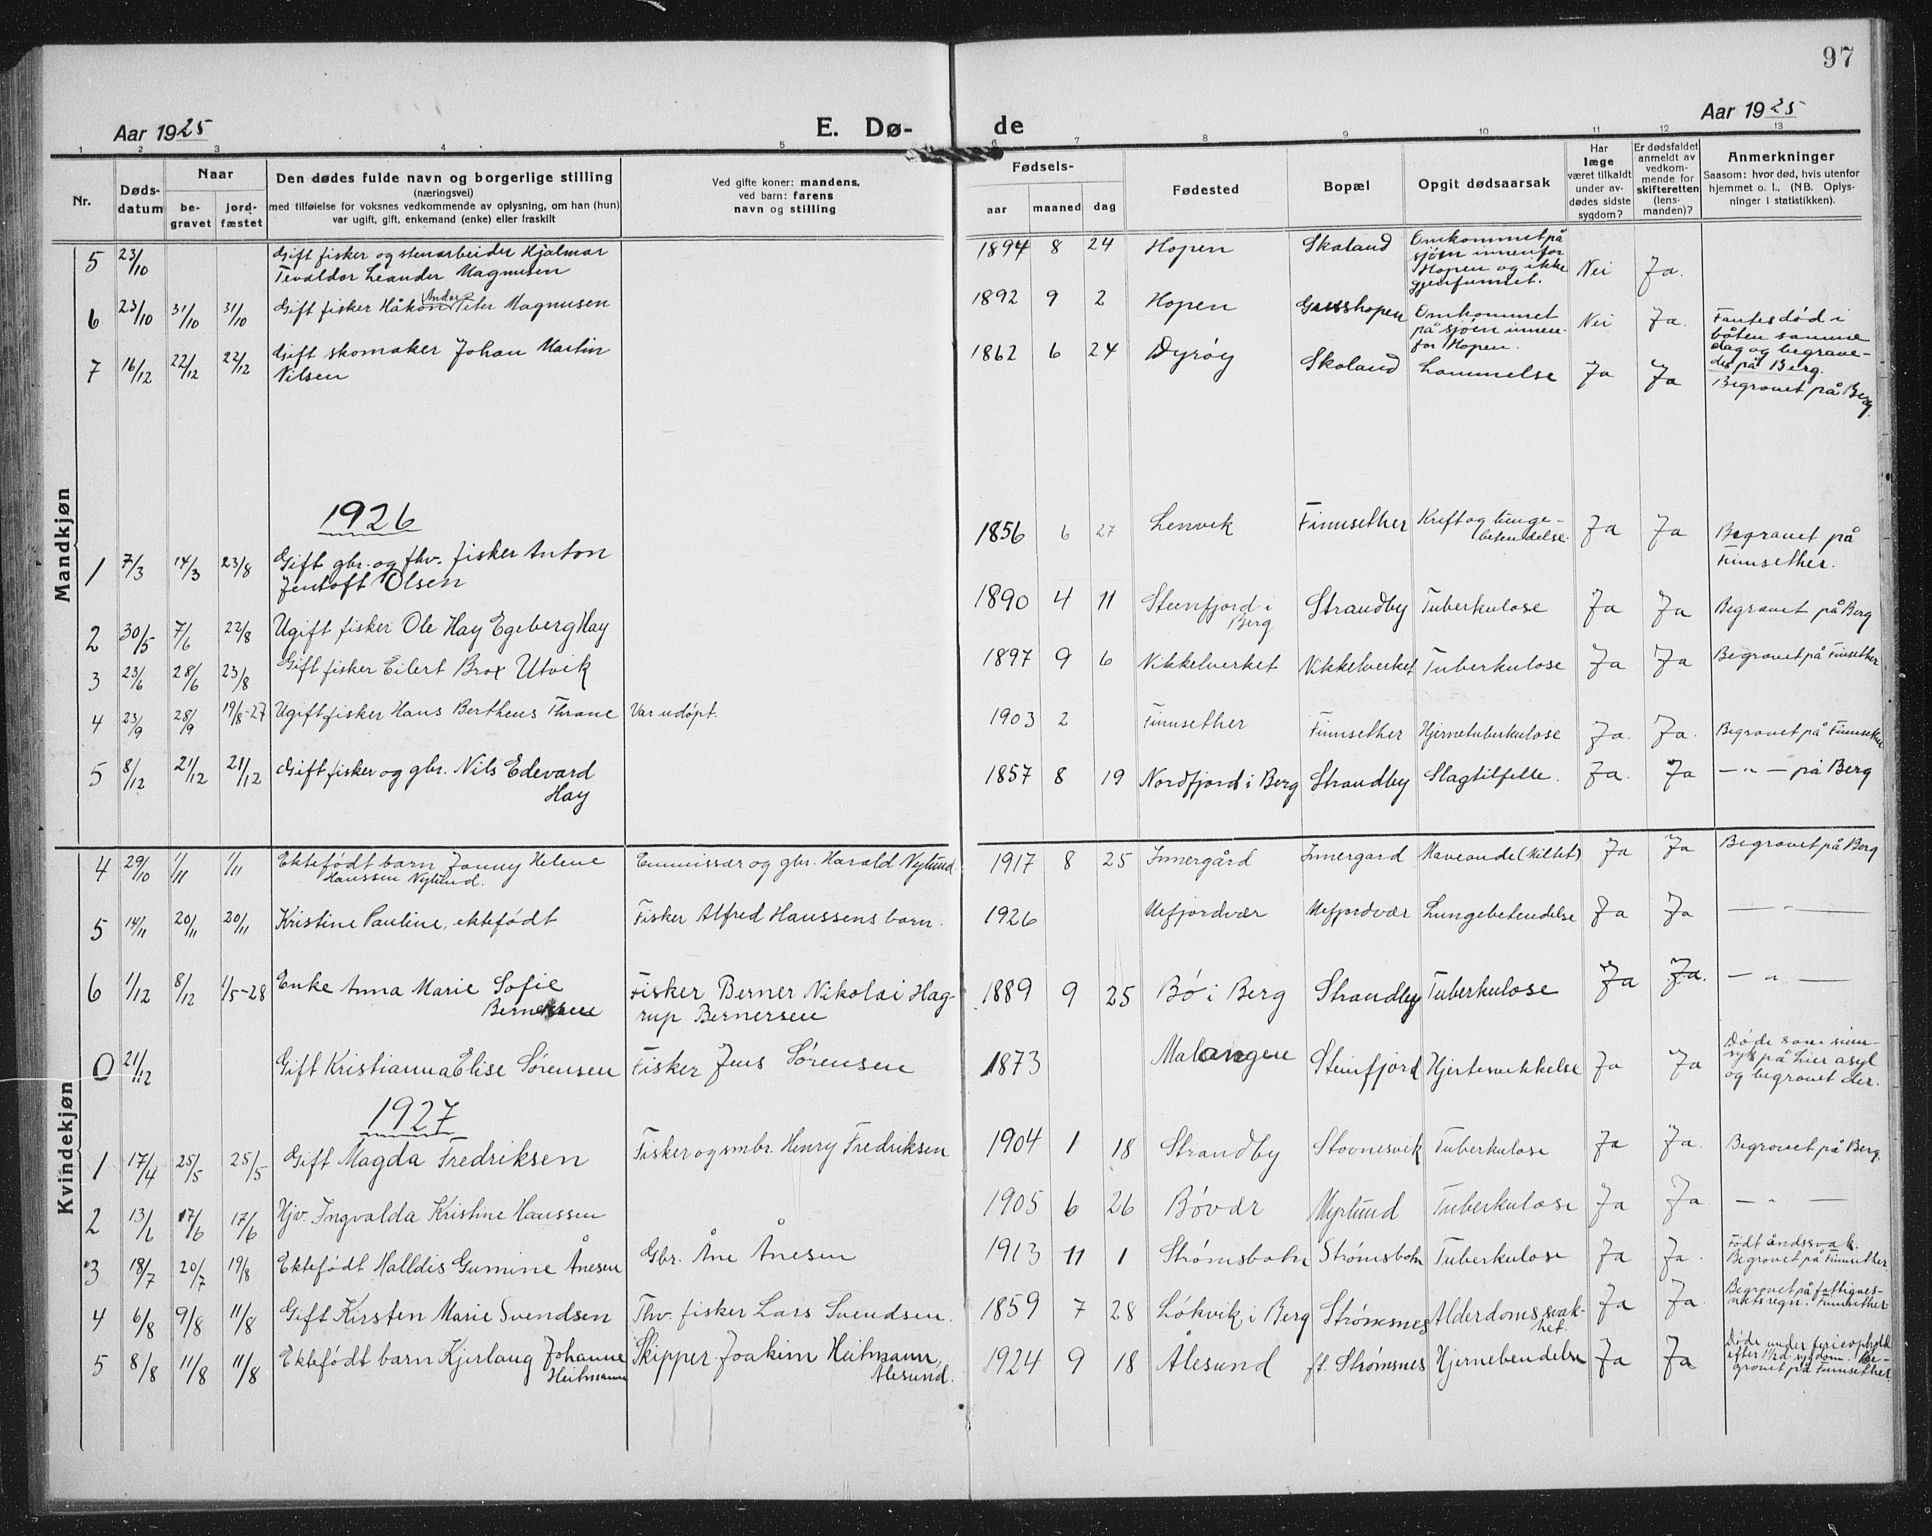 97
Aar 1925
E. Dø-
de
Aar 1925
1 2 3 4 5 6 7 8 9 10 11 12 13
Nr.
Døds-
datum
Naar
be-
gravet
jord-
fæstet
Den dødes fulde navn og borgerlige stilling
(næringsvei)
med tilføielse for voksnes vedkommende av oplysning, om han (hun)
var ugift, gift, enkemand (enke) eller fraskilt
Ved gifte koner: mandens,
ved barn: farens
navn og stilling
Fødsels-
aar maaned dag
Fødested
Bopæl
Opgit dødsaarsak
Har
læge
været tilkaldt
under av-
dødes sidste
sygdom?
Er dødsfaldet
anmeldt av
vedkom-
mende for
skifteretten
(lens-
manden)?
Anmerkninger
Saasom: hvor død, hvis utenfor
hjemmet o. l., (NB. Oplys-
ninger i statistikken).
Mandkjøn
5 23/10 Gift fisker og stenarbeider Hjalmar
Tevaldor Leander Magnusen
1894 8 24 Hopen Skaland Omkommet på
sjøen innenfor
Hopen og ikke
gjenfunnet. Nei Ja.
6 23/10 31/10 31/10 Gift fisker Håkon Anders Peter Magnusen
1892 9 2 Hopen Omkommet
på sjøen innen-
for Hopen. Nei Ja. Fantes død i
båten samme
dag og begrave-
des på Berg.
7 16/12 22/12 22/12 Gift skomaker Johan Martin
Nilsen
1862 6 24 Dyrøy Skaland Lammelse Ja Ja Begravet på Berg.
1926
1 7/3 14/3 23/8 Gift gbr. og fhv. fisker Anton
Jentoft Olsen
1856 6 27 Lenvik Finnsether Kreft og lunge-
betendelse Ja Ja Begravet på
Finnsether.
2 30/5 7/6 22/8 Ugift fisker Ole Hay Egeberg Hay
1890 4 11 Steinfjord i
Berg Strandby Tuberkulose Ja Ja Begravet på Berg
3 23/6 28/6 23/8 Gift fisker Eilert Brox Utvik
1897 9 6 Nikkelverket Nikkelverket Tuberkulose Ja Ja Begravet på Finsether
4 23/9 28/9 19/8-27 Ugift fisker Hans Bertheus Thrane Var udøpt.
1903 2 Finnsether Finnsether Hjernetuberkulose Ja. Ja. Begravet på Finnsether
5 8/12 21/12 21/12 Gift fisker og gbr. Nils Edevard
Hay
1857 8 19 Nordfjord i Berg Strandby Slagtilfelle. Ja. Ja — " — på Berg
Kvindekjøn
4 29/10 1/11 1/11 Ektefødt barn Jonny Helene
Hanssen Nylund. Emmissær og gbr. Harald Nylund.
1917 8 25 Innergård Innergard Maveonde (kiltet) Ja Ja Begravet på Berg
5 14/11 20/11 20/11 Kristine Pauline, ektefødt Fisker Alfred Hanssens barn.
1926 Mefjordvær Mefjordvær Lungebetendelse Ja Ja — " —
6 1/12 8/12 1/5-28 Enke Anna Marie Sofie
Bernersen Fisker Berner Nikolai Hag-
rup Bernersen
1889 9 25 Bø i Berg Strandby Tuberkulose Ja Ja. — " —
0 21/12 Gift Kristianna Elise Sørensen Fisker Jens Sørensen
1873 Malangen Steinfjord Hjertesvekkelse Ja Ja Døde som sinn-
syk på Lier asyl
og begravet der.
1927
1 17/4 25/5 25/5 Gift Magda Fredriksen Fisker og smbr. Henry Fredriksen
1904 1 18 Strandby Stonnesvik Tuberkulose Ja Ja. Begravet på Berg.
2 13/6 17/6 17/6 Hjv. Ingvalda Kristine Hanssen
1905 6 26 Bøvær Myrlund Tuberkulose Ja Ja. — " —
3 18/7 20/7 19/8 Ektefødt Halldis Gumine Ånesen Gbr. Åne Ånesen
1913 11 1 Strømsbotn Strømsbotn Tuberkulose Ja Ja. Født åndssvak.
Begravet på Finnsether
4 6/8 9/8 11/8 Gift Kirsten Marie Svendsen Fhv. fisker Lars Svendsen.
1859 7 28 Løkvik, i Berg Strømsnes Alderdomssvak-
het. Ja Ja. Begravet på fattigves-
nets regn. i Finnsether
5 8/8 11/8 11/8 Ektefødt barn Kjerlaug Johanne
Heitmann Skipper Joakim Heitmann,
Ålesund.
1924 9 18 Ålesund ft. Strømsnes Hjernebendelse Ja Ja Døde under ferieophold
efter 1½ d. sygdom. Be-
gravet på Finnsether.